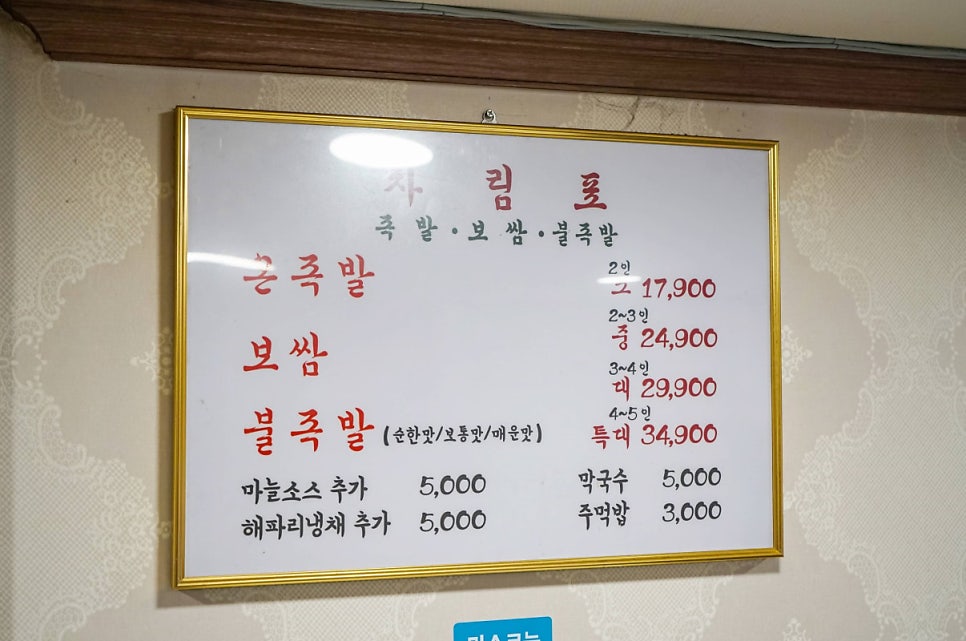 차 림 표
족 발 · 보 쌈 · 불족발
온족발
2인
소 17,900
2~3인
중 24,900
보쌈
3~4인
대 29,900
4~5인
불족발 (순한맛/보통맛/매운맛) 특대 34,900
마늘소스 추가 5,000 막국수 5,000
해파리냉채 추가 5,000 주먹밥 3,000